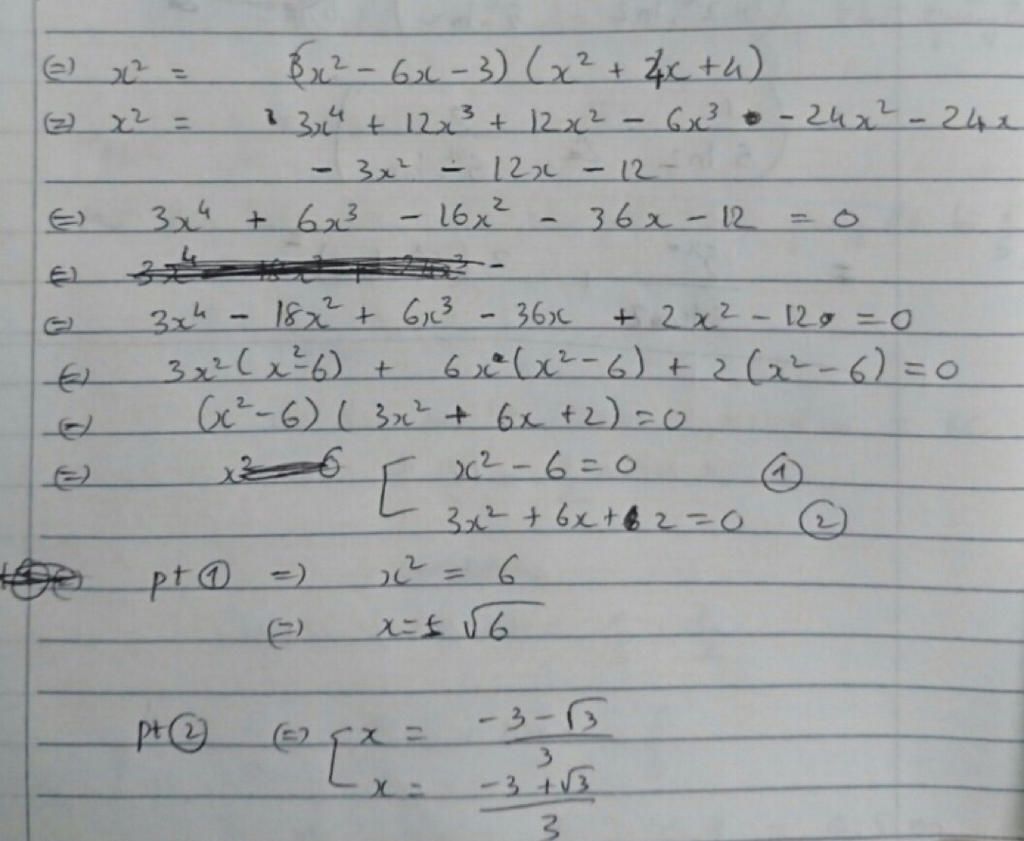 ⇔ x² = (3x² - 6x - 3) (x² + 4x + 4)
⇔ x² = 3x⁴ + 12x³ + 12x² - 6x³ - 24x² - 24x
- 3x² - 12x - 12
⇔ 3x⁴ + 6x³ - 16x² - 36x - 12 = 0
⇔
⇔ 3x⁴ - 18x² + 6x³ - 36x + 2x² - 12 = 0
⇔ 3x²(x² - 6) + 6x(x² - 6) + 2(x² - 6) = 0
⇔ (x² - 6) (3x² + 6x + 2) = 0
⇔ [ x² - 6 = 0 ①
3x² + 6x + 2 = 0 ②
pt ① ⇒ x² = 6
⇔ x = ± √6
pt ② ⇔ [ x = (-3 - √3)/3
x = (-3 + √3)/3